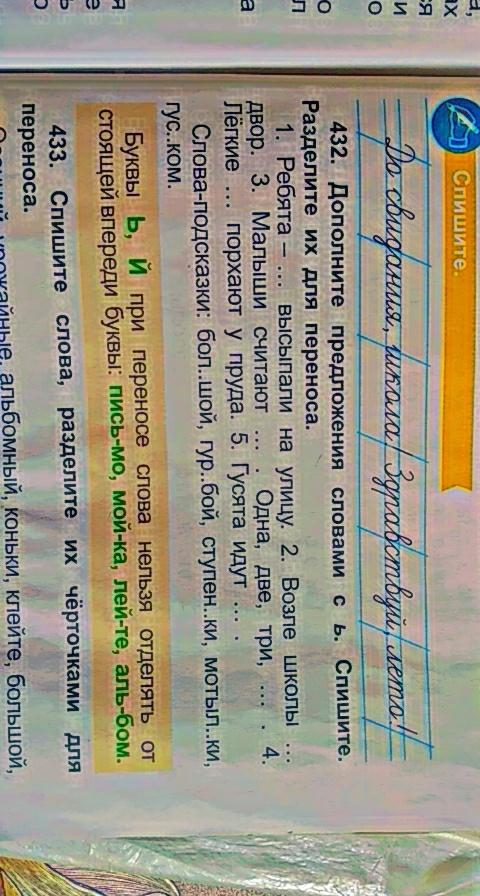 Спишите.
До свидания, школа! Здравствуй, лето!
432. Дополните предложения словами с ь. Спишите.
Разделите их для переноса.
1. Ребята – ... высыпали на улицу. 2. Возле школы ...
двор. 3. Малыши считают ... . Одна, две, три, ... . 4.
Лёгкие ... порхают у пруда. 5. Гусята идут ... .
Слова-подсказки: бол..шой, гур..бой, ступен..ки, мотыл..ки,
гус..ком.
Буквы ь, й при переносе слова нельзя отделять от
стоящей впереди буквы: пись-мо, мой-ка, лей-те, аль-бом.
433. Спишите слова, разделите их чёрточками для
переноса.
урожайные, альбомный, коньки, клейте, большой,